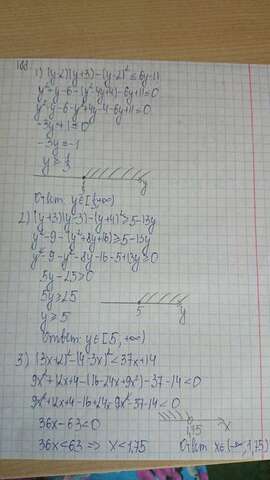 168
1) (y-2)(y+3)-(y-2)² ≤ 6y-11
y²+y-6-(y²-4y+4)-6y+11=0
y²+y-6-y²+4y-4-6y+11=0
-3y+1=0
-3y=-1
y ≥ 1/3
y
Ответ y∈[1/3;+∞)
2) (y+3)(y-3)-(y+4)²≥5-13y
y²-9-(y²+8y+16)≥5-13y
y²-9-y²-8y-16-5+13y≥0
5y-25≥0
5y≥25
y≥5
5 y
Ответ: y∈[5,+∞)
3) (3x+2)²-(4-3x)²<37x+14
9x²+12x+4-(16-24x+9x²)-37-14<0
9x²+12x+4-16+24x-9x²-37-14<0
36x-63<0
1,75 x
36x<63 => x<1,75 Ответ x∈(-∞,1,75)